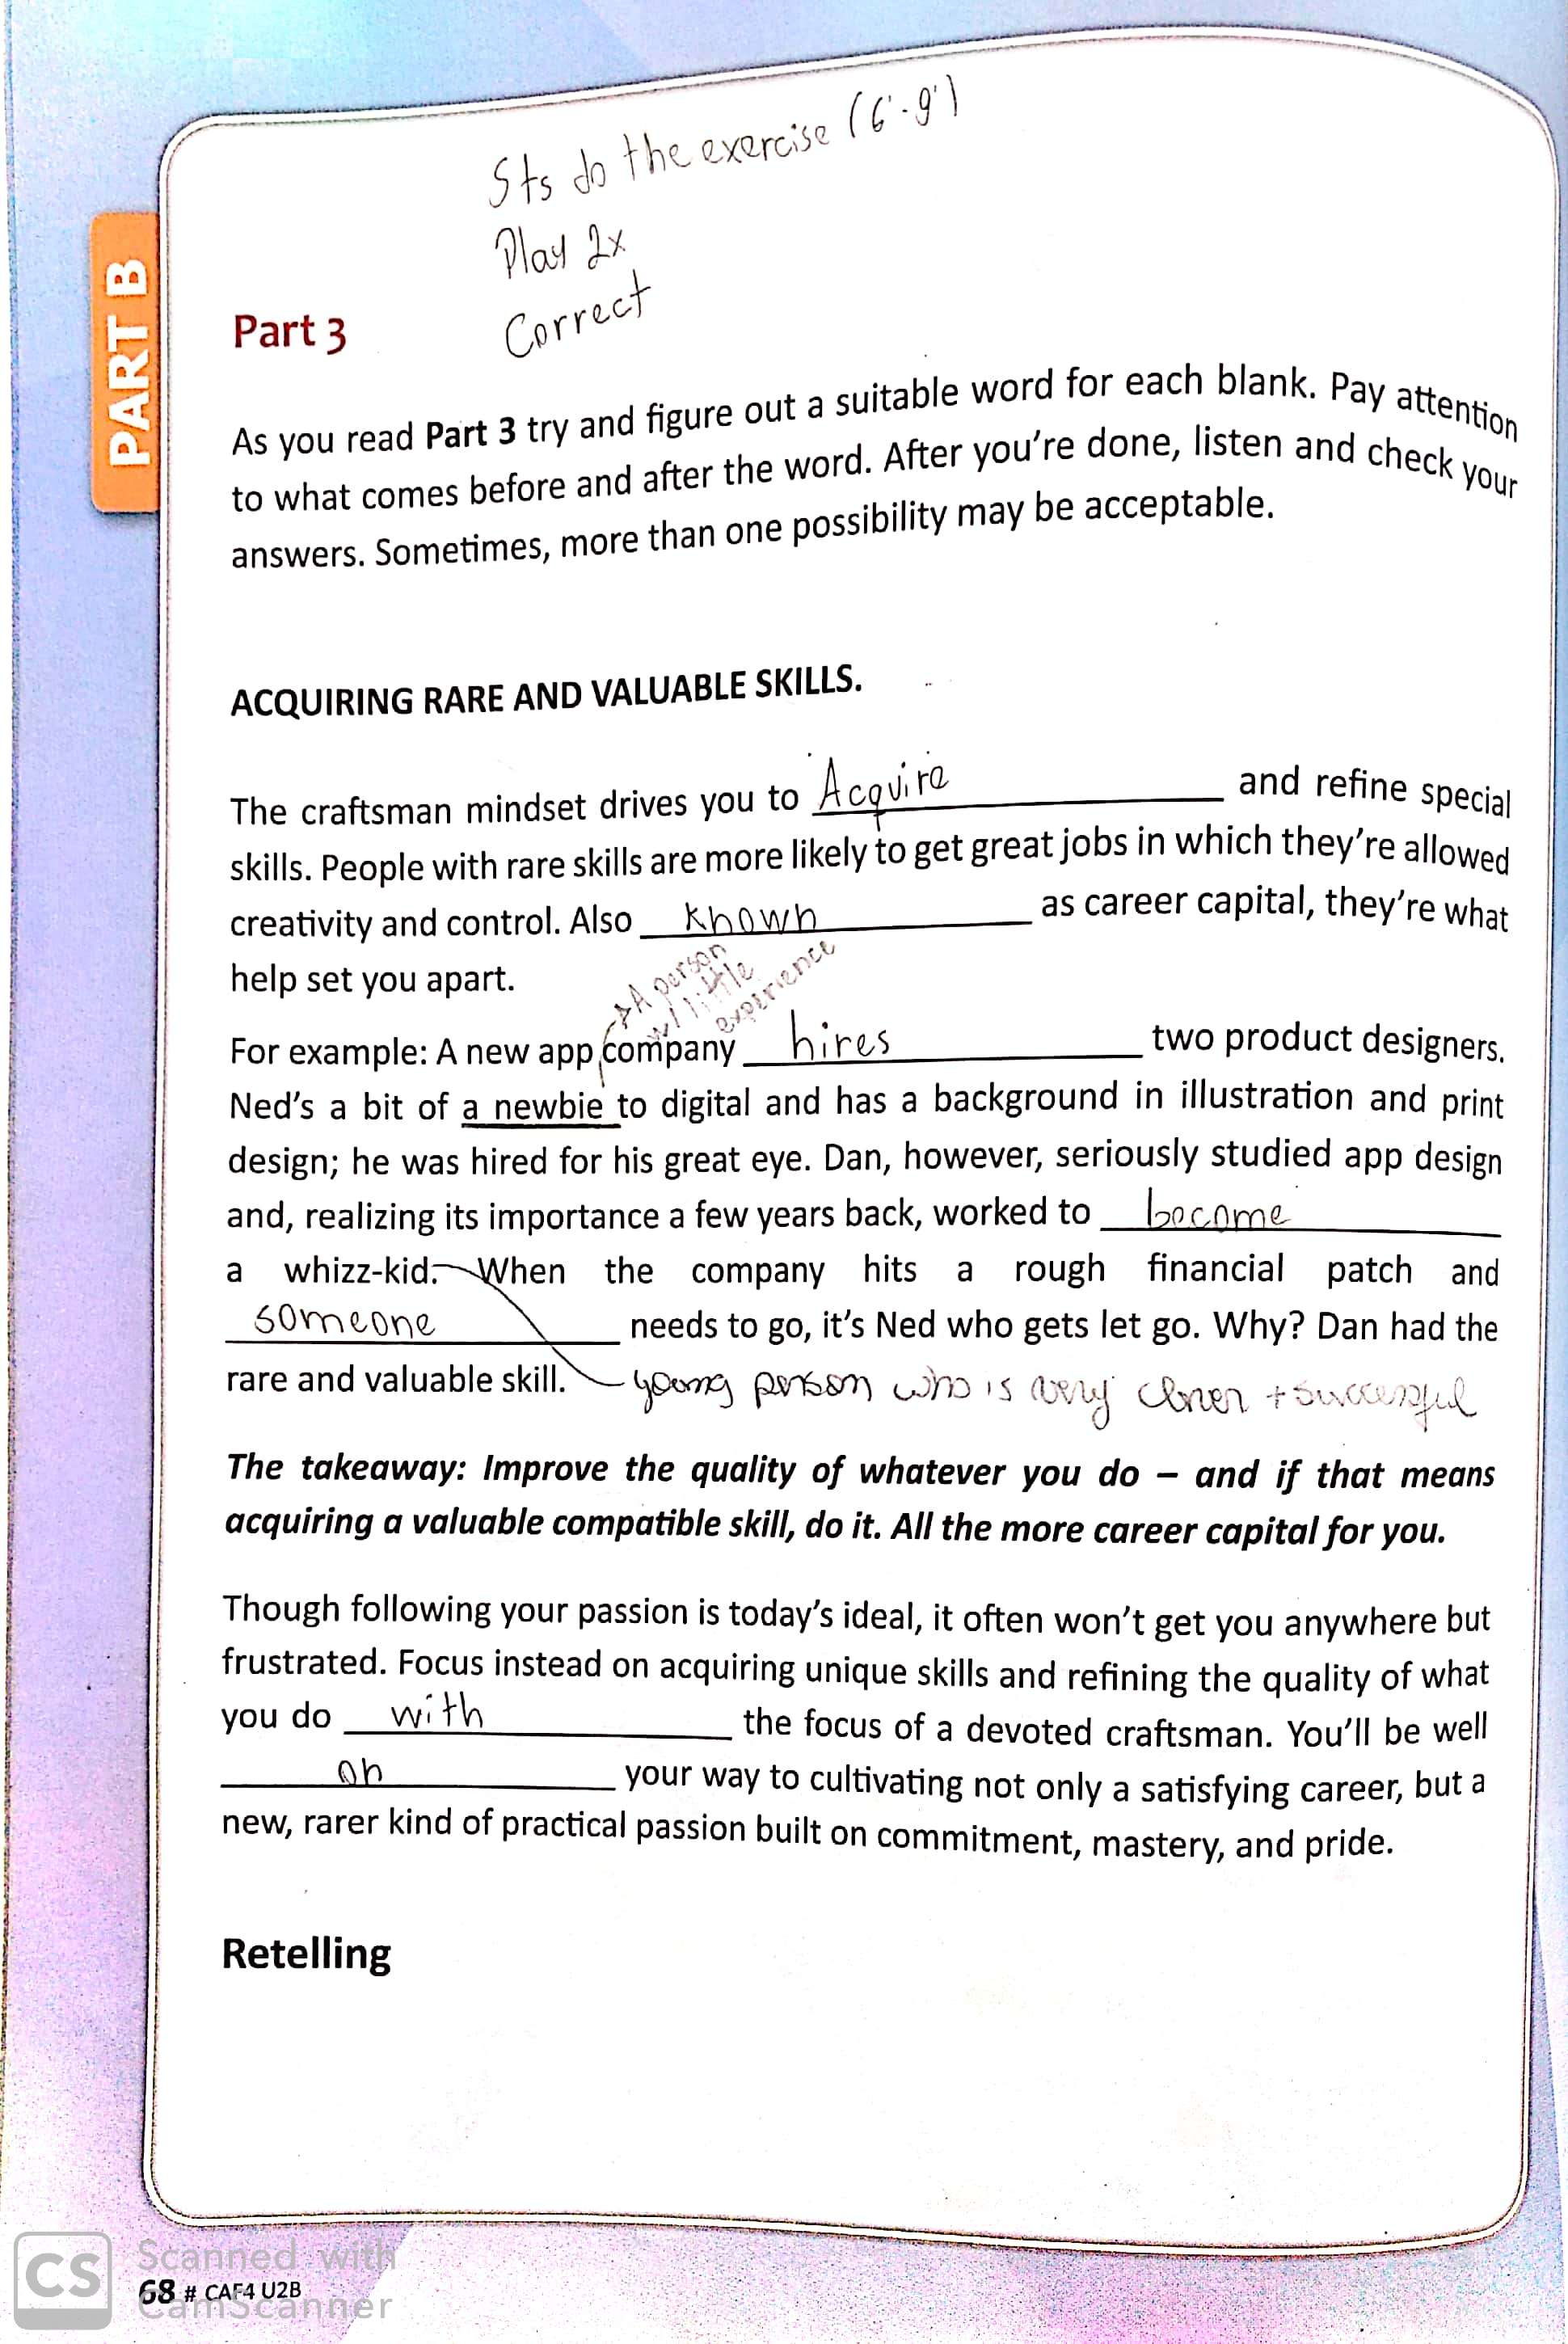 Sts do the exercise (6'-9')
Play 2x
Correct
PART B
Part 3
As you read Part 3 try and figure out a suitable word for each blank. Pay attention
to what comes before and after the word. After you're done, listen and check your
answers. Sometimes, more than one possibility may be acceptable.
ACQUIRING RARE AND VALUABLE SKILLS.
The craftsman mindset drives you to Acquire and refine special
skills. People with rare skills are more likely to get great jobs in which they're allowed
creativity and control. Also known as career capital, they're what
help set you apart.
A person
w/ little
experience
For example: A new app company hires two product designers.
Ned's a bit of a newbie to digital and has a background in illustration and print
design; he was hired for his great eye. Dan, however, seriously studied app design
and, realizing its importance a few years back, worked to become
a whizz-kid. When the company hits a rough financial patch and
someone needs to go, it's Ned who gets let go. Why? Dan had the
rare and valuable skill. young person who is very clever + successful
The takeaway: Improve the quality of whatever you do – and if that means
acquiring a valuable compatible skill, do it. All the more career capital for you.
Though following your passion is today's ideal, it often won't get you anywhere but
frustrated. Focus instead on acquiring unique skills and refining the quality of what
you do with the focus of a devoted craftsman. You'll be well
on your way to cultivating not only a satisfying career, but a
new, rarer kind of practical passion built on commitment, mastery, and pride.
Retelling
CS Scanned with
CamScanner
68 # CAF4 U2B